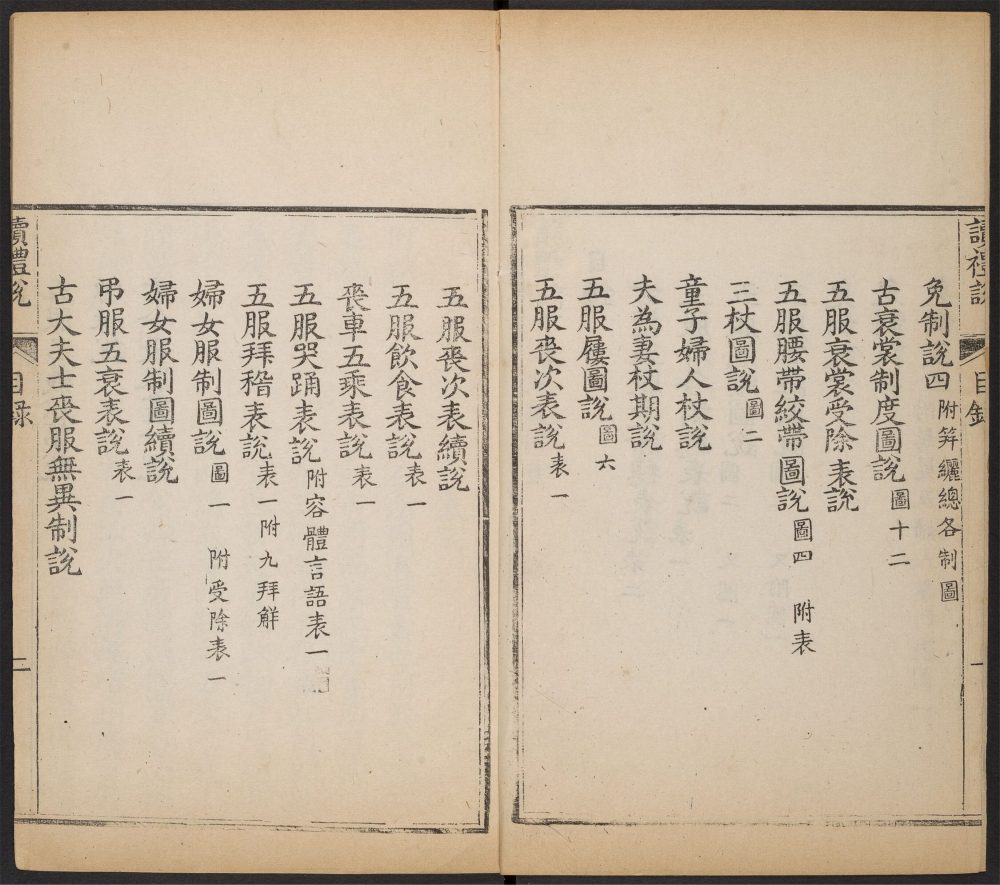 讀禮說 目錄 一
免制說四 附笄纚總各制圖
古衰裳制度圖說 圖十二
五服衰裳受除表說
五服腰帶絞帶圖說 圖四 附表
三杖圖說 圖二
童子婦人杖說
夫為妻杖期說
五服屨圖說 圖六
五服喪次表說 表一
五服喪次表續說
五服飲食表說 表一
喪車五乘表說 表一
五服哭踊表說 附容體言語表一
五服拜稽表說 表一 附九拜解
婦女服制圖說 圖一 附受除表一
婦女服制圖續說
弔服五衰表說 表一
古大夫士喪服無異制說
讀禮說 目錄 二